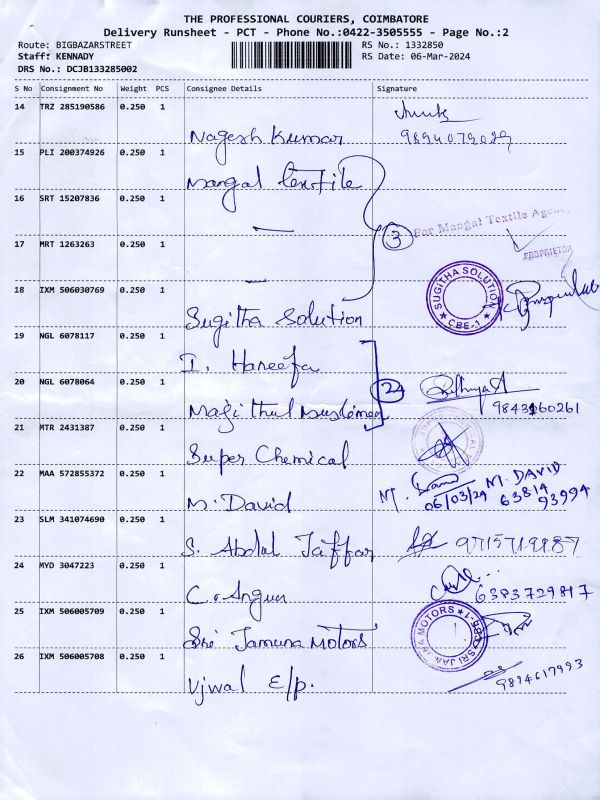 THE PROFESSIONAL COURIERS, COIMBATORE
Delivery Runsheet - PCT - Phone No.:0422-3505555 - Page No.:2
Route: BIGBAZARSTREET RS No.: 1332850
Staff: KENNADY RS Date: 06-Mar-2024
DRS No.: DCJB133285002
S No Consignment No Weight PCS Consignee Details Signature
14 TRZ 285190586 0.250 1
Nagesh Kumar
15 PLI 200374926 0.250 1
Mangal textile
16 SRT 15207836 0.250 1
—
For Mangal Textile
3
17 MRT 1263263 0.250 1
—
PROPRIETOR
18 IXM 506030769 0.250 1
Sugitha Solution
SUGITHA SOLUTION
★ CBE-1 ★
19 NGL 6078117 0.250 1
I. Haneefa
20 NGL 6078064 0.250 1
9843160261
21 MTR 2431387 0.250 1
Super Chemical
22 MAA 572855372 0.250 1
M. David
06/03/24 M. DAVID
63814
93994
23 SLM 341074690 0.250 1
S. Abdul Jaffar
24 MYD 3047223 0.250 1
6383729817
25 IXM 506005709 0.250 1
Sri Jamuna Motors
26 IXM 506005708 0.250 1
Ujwal E/p.
9894617993